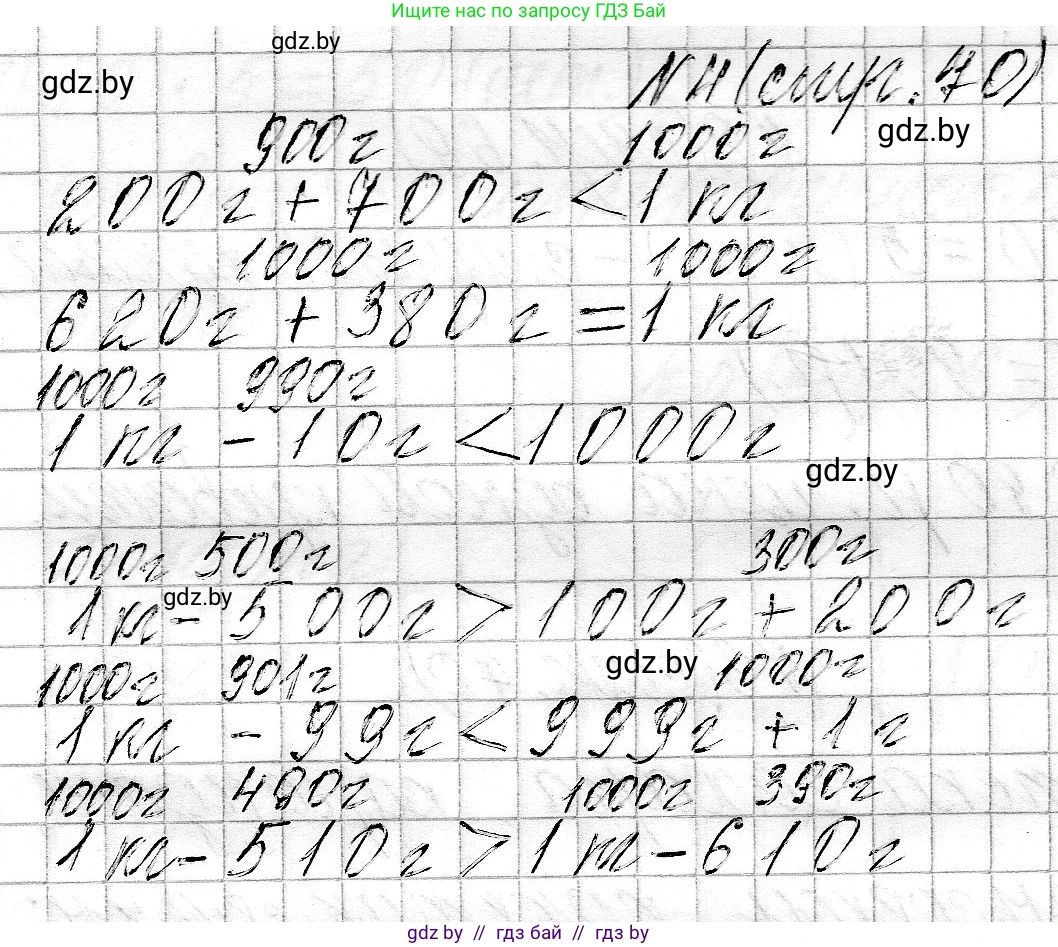 Ищите нас по запросу ГДЗ Бай
gdz.by
gdz.by
№4 (стр. 40)
gdz.by
900г 1000г
200г + 700г < 1 кг
1000г 1000г
620г + 380г = 1 кг
1000г 990г
1 кг - 10г < 1000г
gdz.by
1000г 500г 300г
gdz.by
1 кг - 500г > 100г + 200г
gdz.by
1000г 901г 1000г
1 кг - 99г < 999г + 1г
1000г 490г 1000г 390г
1 кг - 510г > 1 кг - 610г
gdz.by // гдз бай // gdz.by